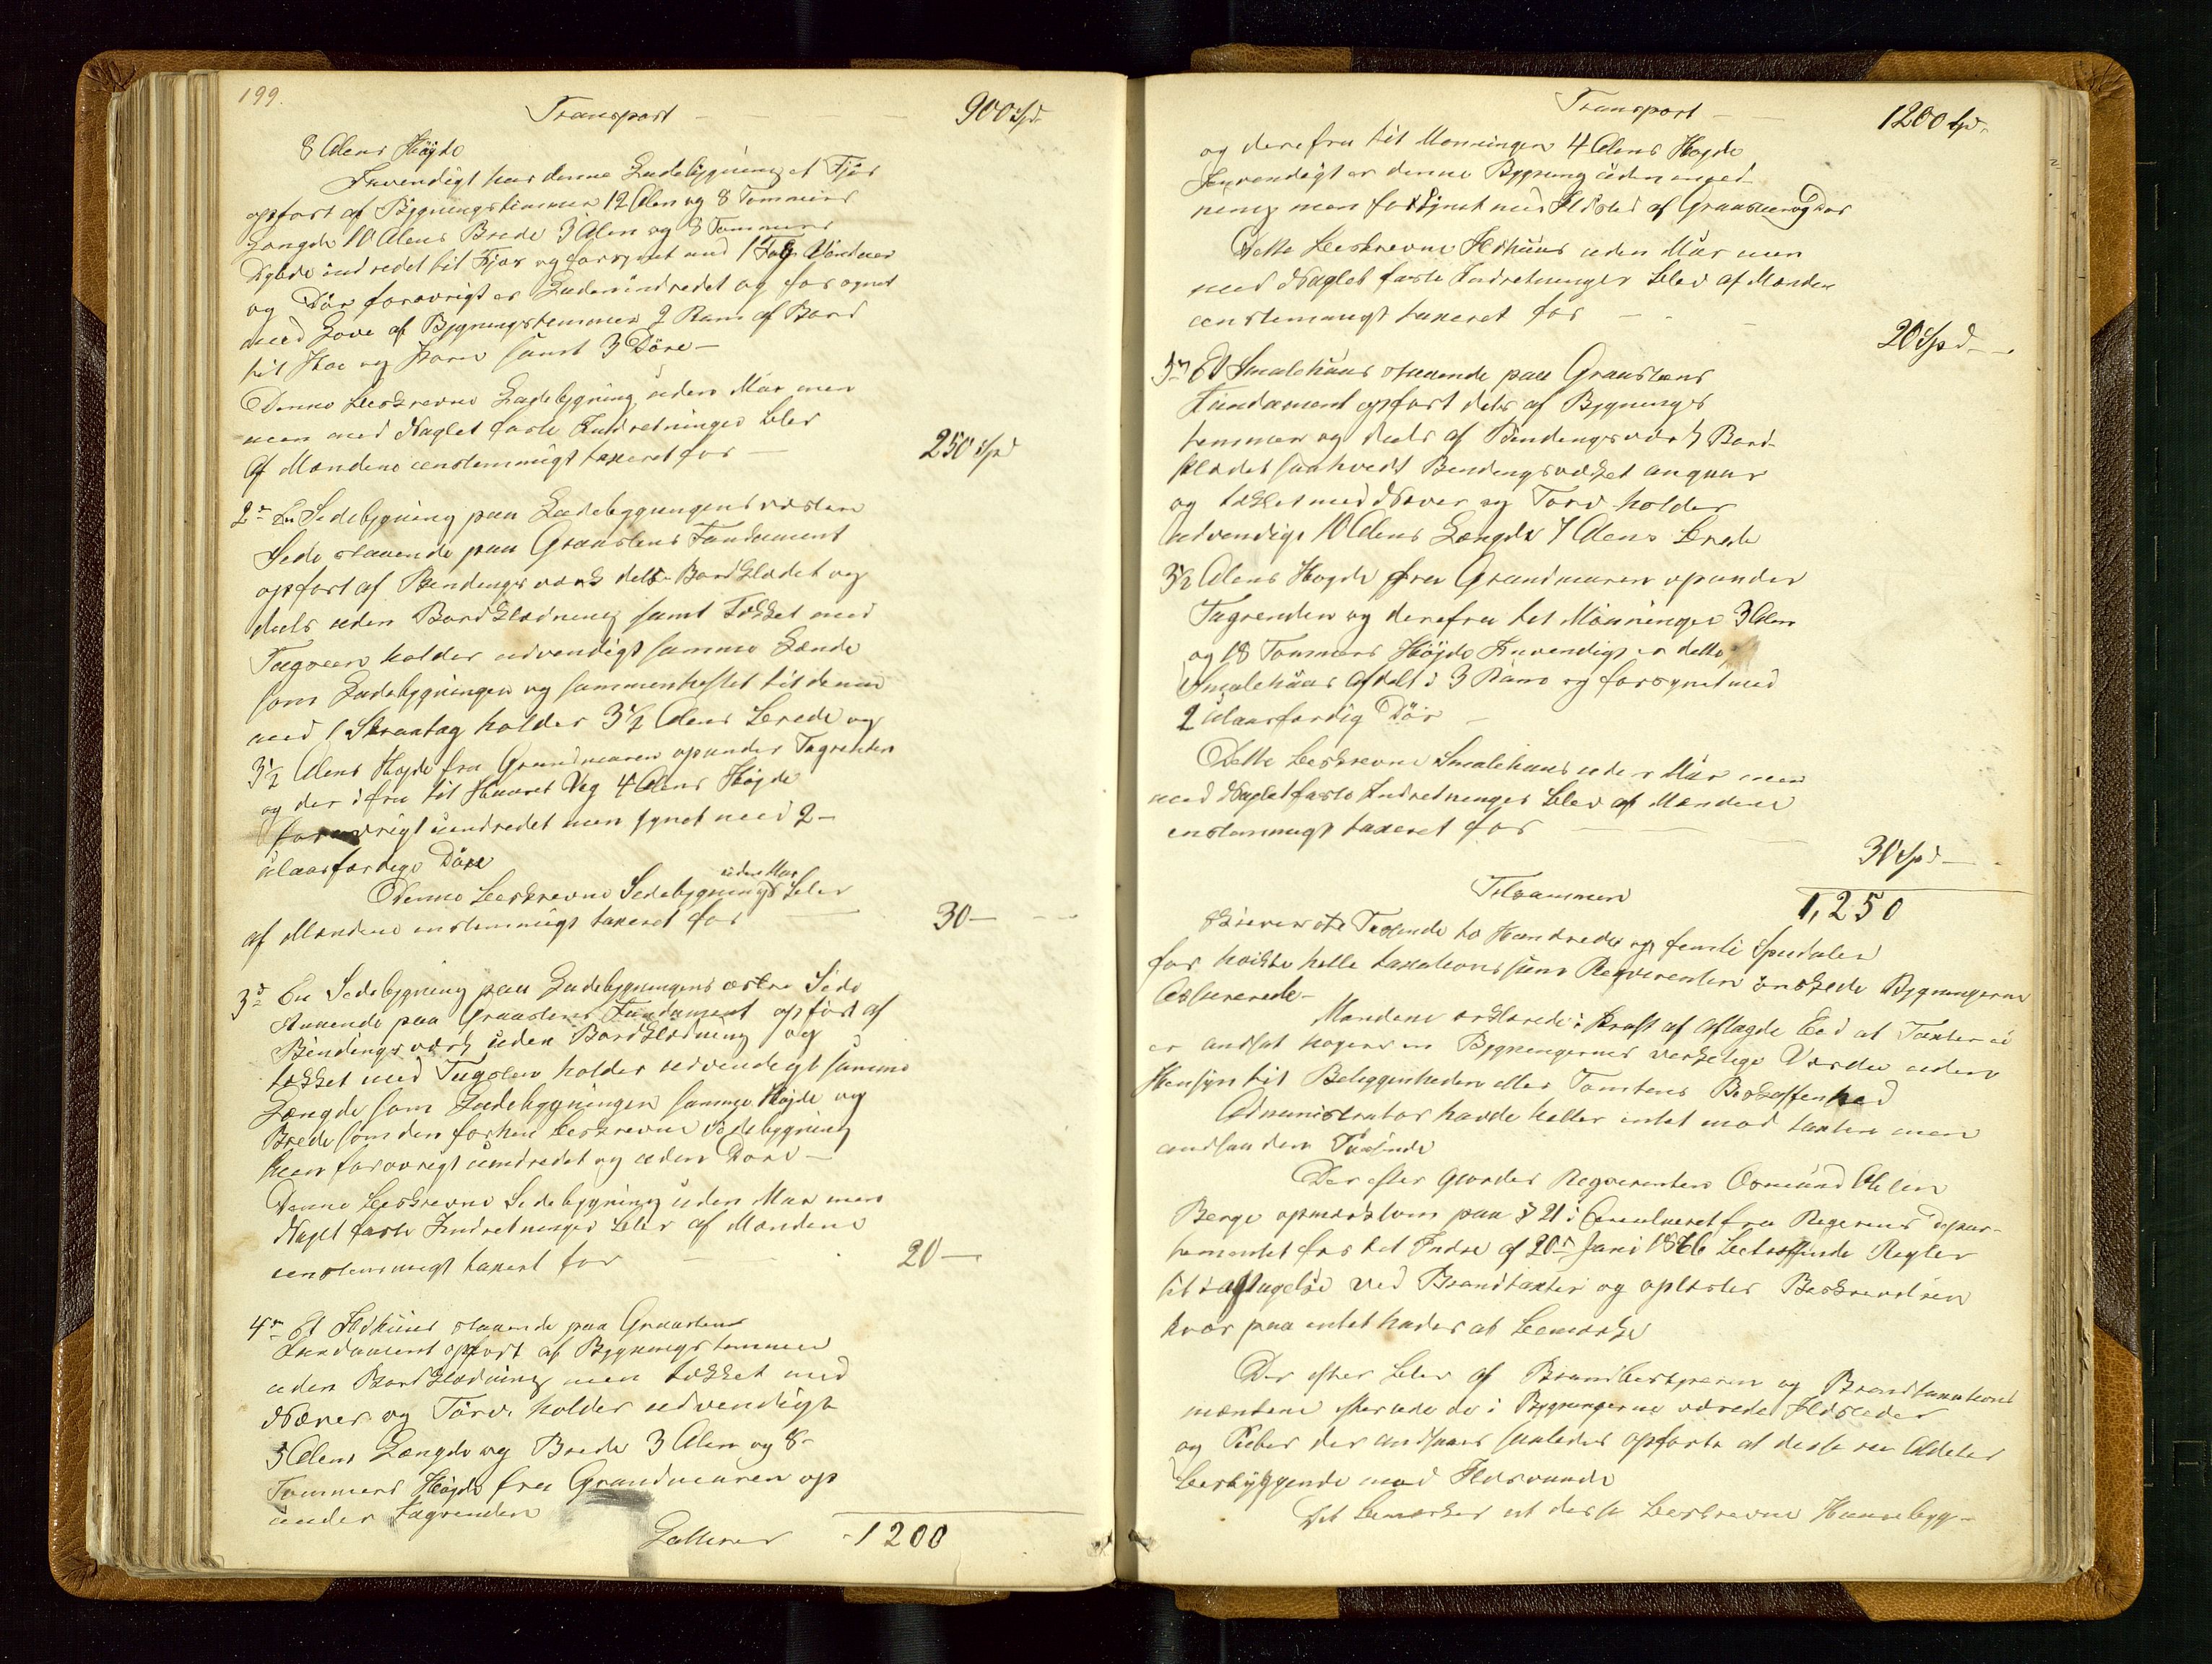 199.
Transport — — — — 900 Spd.
8 Alens Höjde
Invendigt har denne Ladebygning et Fjös
opfört af Bygningstömmer 12 Alen og 8 Tommers
Længde 10 Alens Brede 3 Alen og 8 Tommers
Dybde indredet til Fjös og forsynet med 1 Fag Vinduer
og Dör forövrigt er Laden indredet og forsynet
med Love af Bygningstömmer 2 Rum af Bord
til Höe og Korn samt 3 Döre —
Denne beskrevne Ladebygning uden Mur men
men med Naglet faste Indretninger blev
Af Mændene eenstemmigt taxeret for — 250 Spd
2n En Sidebygning paa Ladebygningens vestre
Side staaende paa Graastens Fundament
opfört af Bindingsværk dels Bordklædet og
deels uden Bordklædning samt Tækket med
Tagsteen holder udvendigt samme Længde
som Ladebygningen og sammenheftet til denne
med 1 Skraatag holder 3½ Alens Brede og
3½ Alens Höjde fra Grundmuren op under Tagrenden
og der ifra til Huusets Væg 4 Alens Höjde
forövrigt uindredet men synet med 2 —
ulaasfærdige Döre
Denne beskrevne Sidebygning uden Mur blev
af Mændene enstemmigt taxeret for — 30 —
3d En Sidebygning paa Ladebygningens östre Side
staaende paa Graastens Fundament opfört af
Bindingsværk uden Bordklædning og
tækket med Tagsten holder udvendigt samme
Længde som Ladebygningen samme Höjde og
Brede som den forhen beskrevne Sidebygning
Men forövrigt uindredet og uden Döre —
Denne beskrevne Sidebygning uden Mur men
Naglet faste Indretninger blev af Mændene
eenstemmigt taxert for — 20 —
4n Et Ildhuus staaende paa Graastens
Fundament opfört af Bygningstömmer
uden Bordklædning men tækket med
Næver og Törv. holder udvendigt
5 Alens Længde og Brede 3 Alen og 8
Tommers Höjde fra Grundmuren op
under Tagrenden
Lattuser - 1200
Transport — — 1200 Spd.
og derefra til Mønningen 4 Alens Høyde
Indvendigt er denne Bygning uden indred-
ning men forsynet med Ildsted af Graasteen og Dør
Dette beskrevne Ildhuus uden Mur men
med Naglet faste Indretninger blev af Mændene
eenstemmigt taxeret for — — — 20 Spd —
5n Et Smalehuus staaende paa Graastens
Fundament opført dels af Bygnings
tømmer og deels af Bindingsværk Bord
klædet saavidt Bindingsværket angaar
og tækket med Næver og Torv holder
udvendigt 10 Alens Længde 7 Alens Brede
3½ Alens Høyde fra Grundmuren op under
Tagrenden og derefra til Mønningen 3 Alen
og 18 Tommers Höjde Invendigt er dette
Smalehuus afdelt i 3 Rum og forsynet med
2 ulaasfærdig Dör —
Dette beskrevne Smalehuus uden Mur men
med Nagletfaste Indretninger blev af Mændene
enstemmigt taxeret for — — 30 Spd —
Tilsammen 1,250
Skriver et Tusende to Hundrede og femti Spedaler
for hvilke hele taxationssum Reqvirenten önskede Bygningerne
Assurerede —
Mændene erklærede i Kraft af aflagde Eed at Taxten ei
er andsat högere en Bygningernes verkelige Værdie uden
Hensyn til Beliggenheden eller Tomtens Beskaffenhed
Administrator havde heller intet mod taxten men
andsaa den Passende
Der efter gjordes Reqvirenten Osmund Olsen
Berge opmerksom paa § 21 i Circulæret fra Regjerins Depar-
tementet for det Indre af 20n Juni 1866 betræffende Regler
til iagtagelse ved Brandtaxter og oplæstes Beskrivelsen
hvor paa intet hades at bemærke
Der efter blev af Brandbestyreren og Brandtaxations
mændene efterseede de i Bygningerne værende Ildsteder
og Piber der andsaaes saaledes opførte at disse ere Aldeles
besbyggende mod Ildsvaade
Det bemærkes at disse beskrevne Huusebyg-